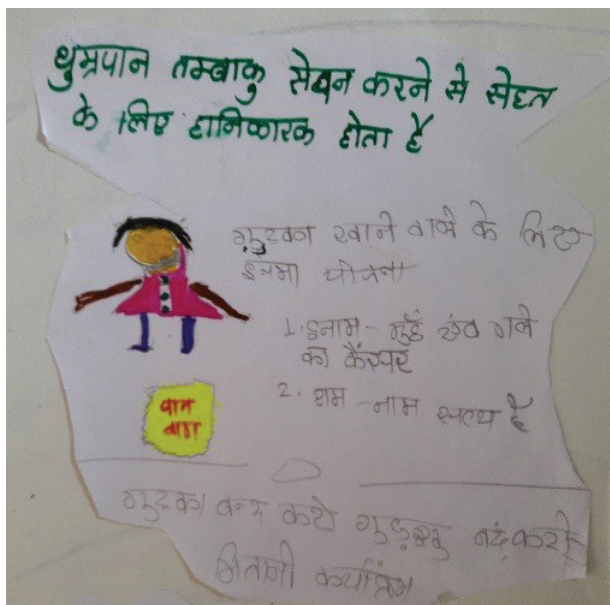 धुम्रपान तम्बाकु सेवन करने से सेहत
के लिए हानिकारक होता है
गुटका खाने वाले के लिए
इनमा योजना
1. इनाम - मुहँ एंव गले
का कैंन्सर
2. राम - नाम सत्य है
पान
वाला
गुटका बन्द करो गुड़ाखु बंद करो
मितानी कार्यक्रम